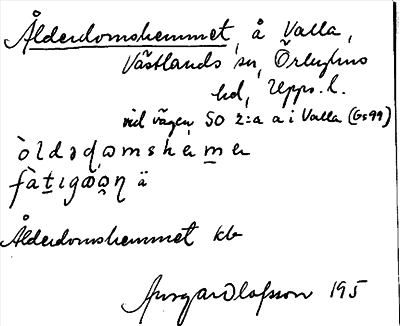 Ålderdomshemmet, å Valla,
Västlands sn, Örbyhus
hd, Upps. l.
vid vägen SO 2:a a i Valla (Gs99)
òldəɖωmshèmer
fàtɪgωωɳ ä
Ålderdomshemmet kb
Olofsson 195